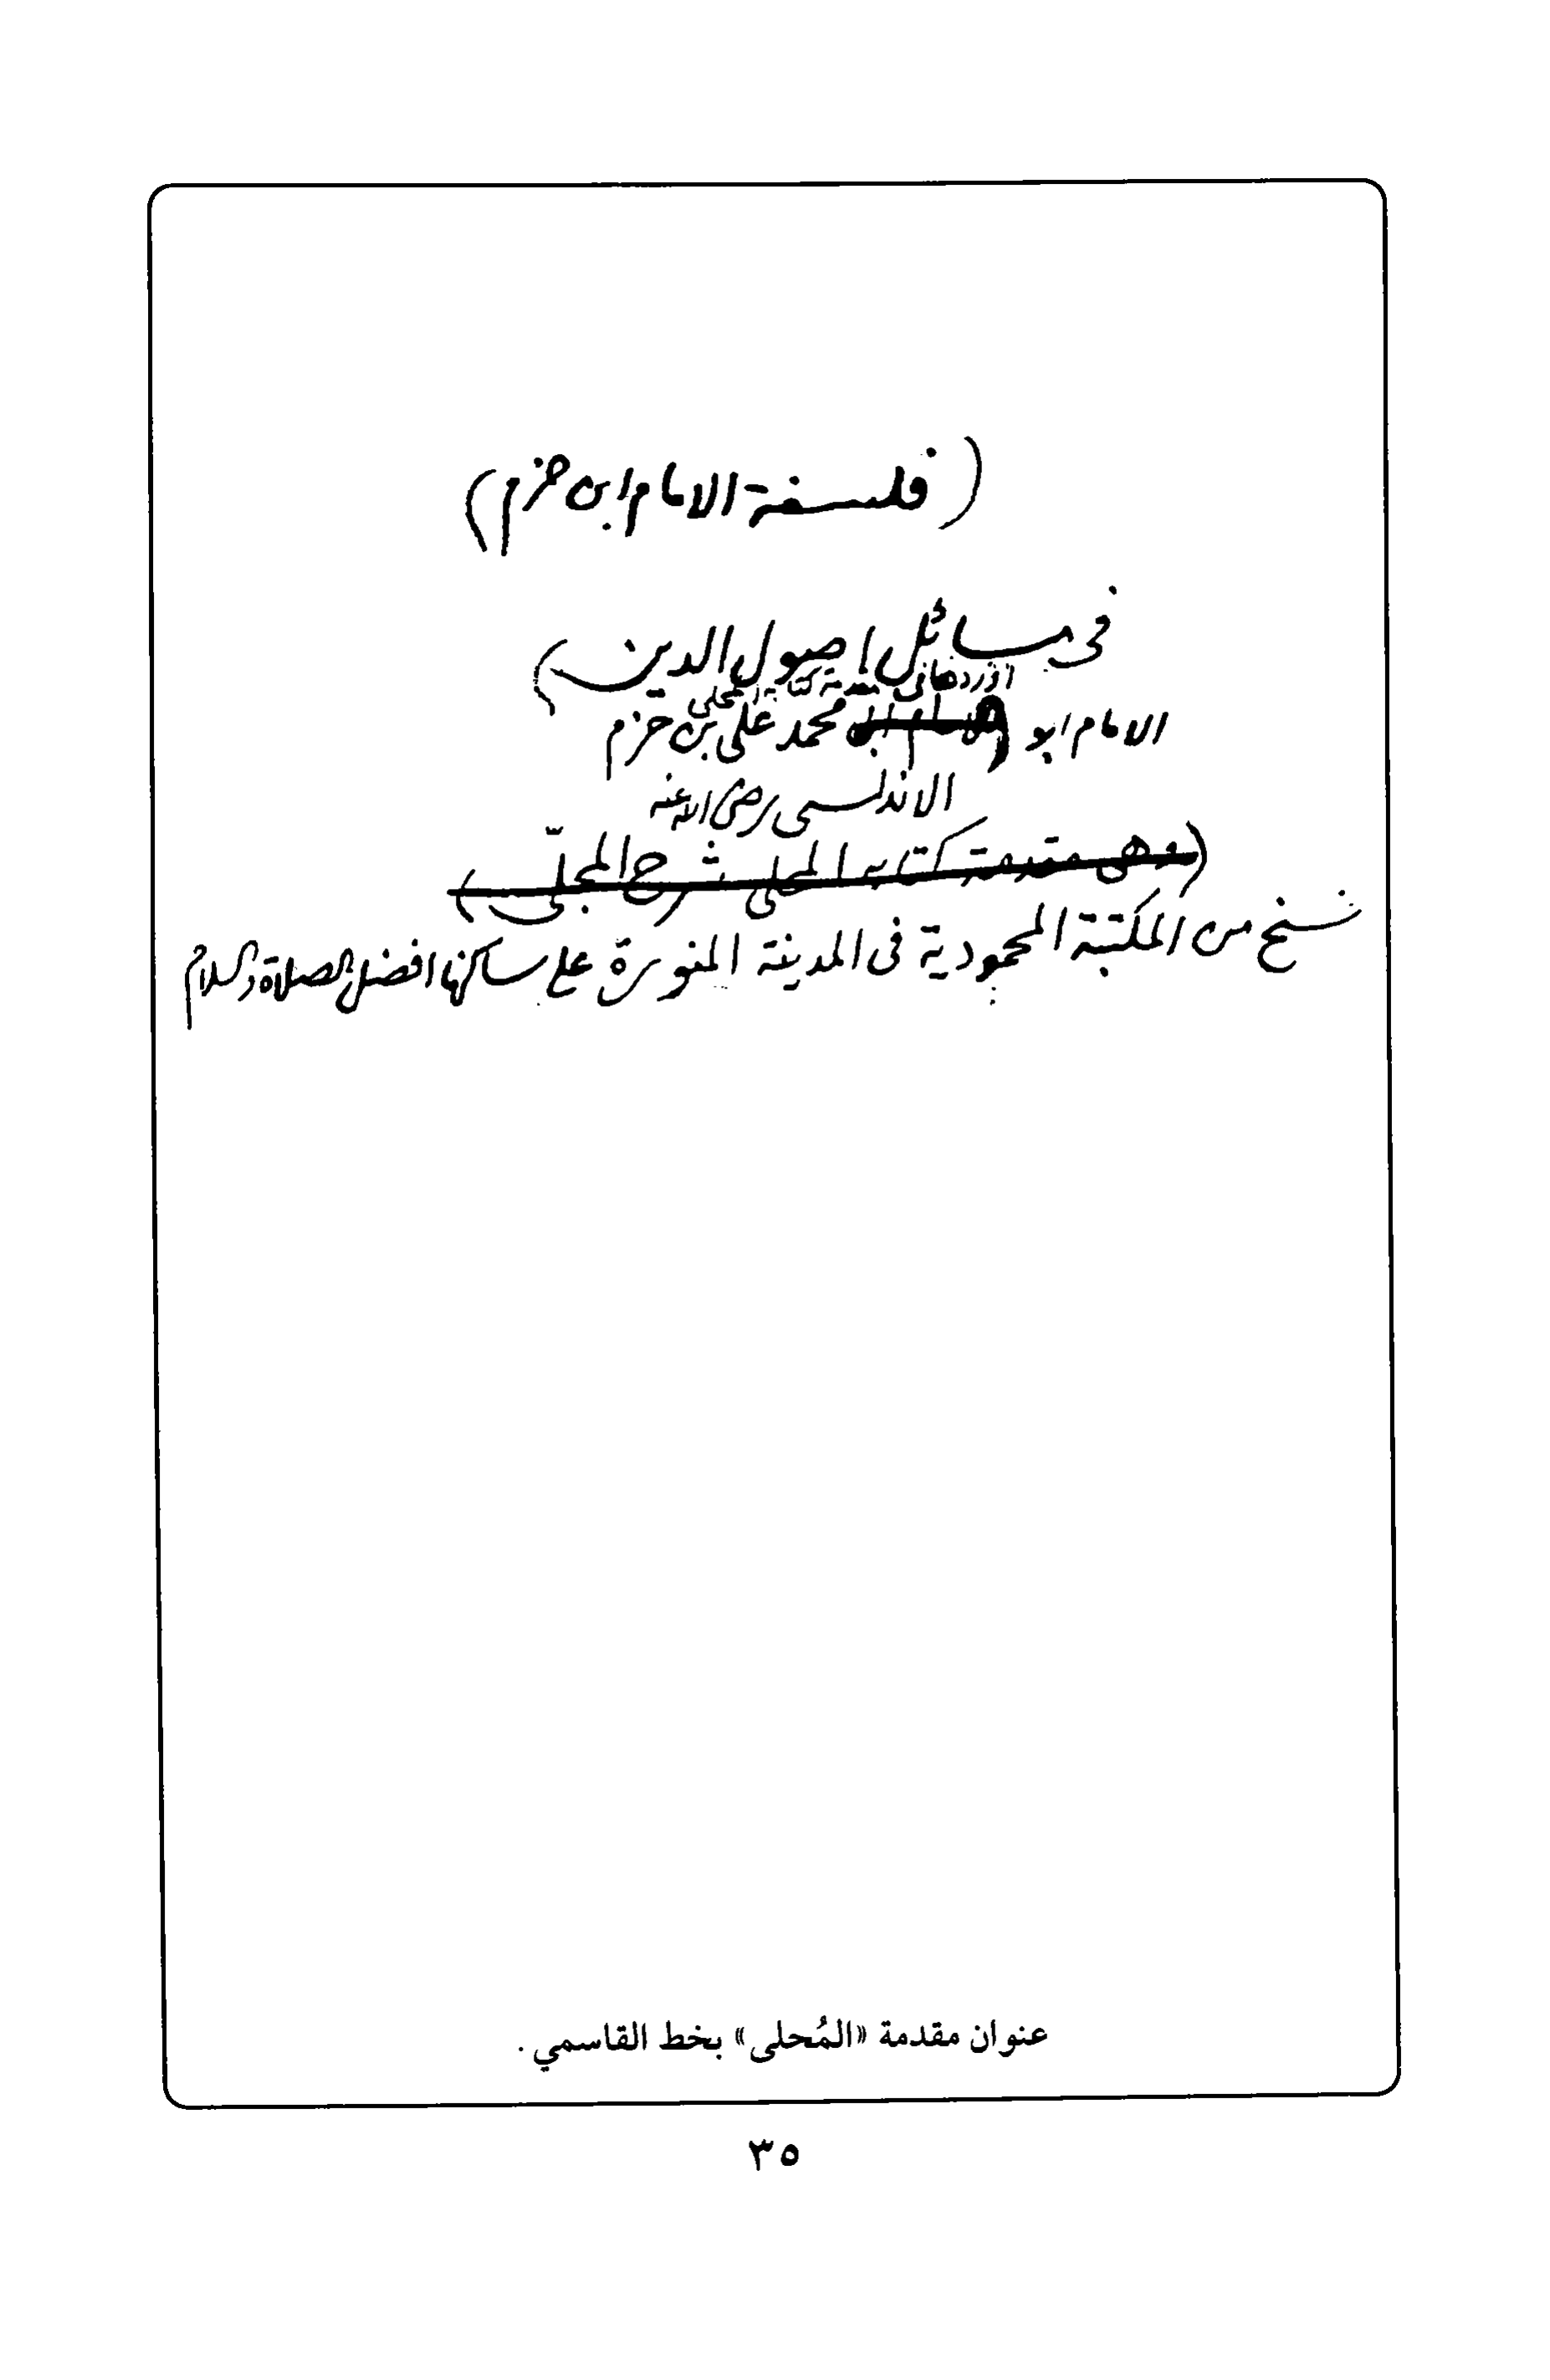 (فلسفة الامام ابن حزم)
فى مسائل اصول الدين)
اوردها فى مقدمة كتابه المحلى
الامام ابو محمد على بن حزم
الاندلسى رضى الله عنه
(وهى مقدمة كتابه المحلى شرح المجلّى)
نسخ من المكتبة المحمودية فى المدينة المنورة على ساكنها افضل الصلاة والسلام
عنوان مقدمة «المُحلى» بخط القاسمي .
٣٥